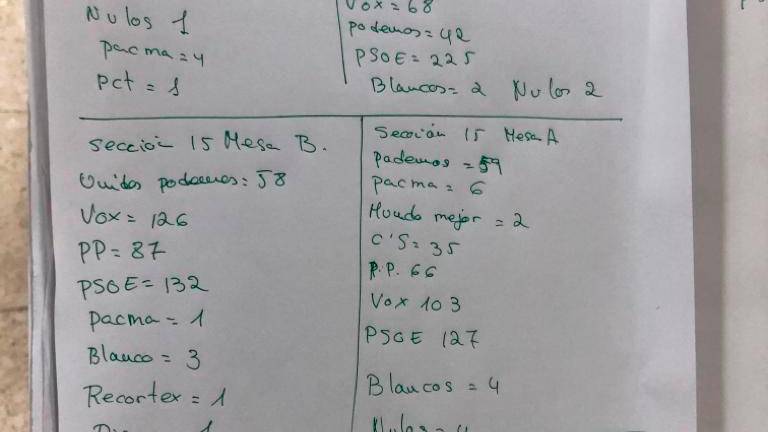 Nulos 1
pacma = 4
Pct = 1
Vox = 68
podemos = 42
PSOE = 225
Blancos = 2 Nulos 2
Sección 15 Mesa B.
Unidos podemos: 58
Vox = 126
PP = 87
PSOE = 132
Pacma = 1
Blanco = 3
Recortex = 1
Sección 15 Mesa A
podemos = 59
pacma = 6
Mundo mejor = 2
C'S = 35
P.P. 66
Vox 103
PSOE 127
Blancos = 4
Nulos = 4